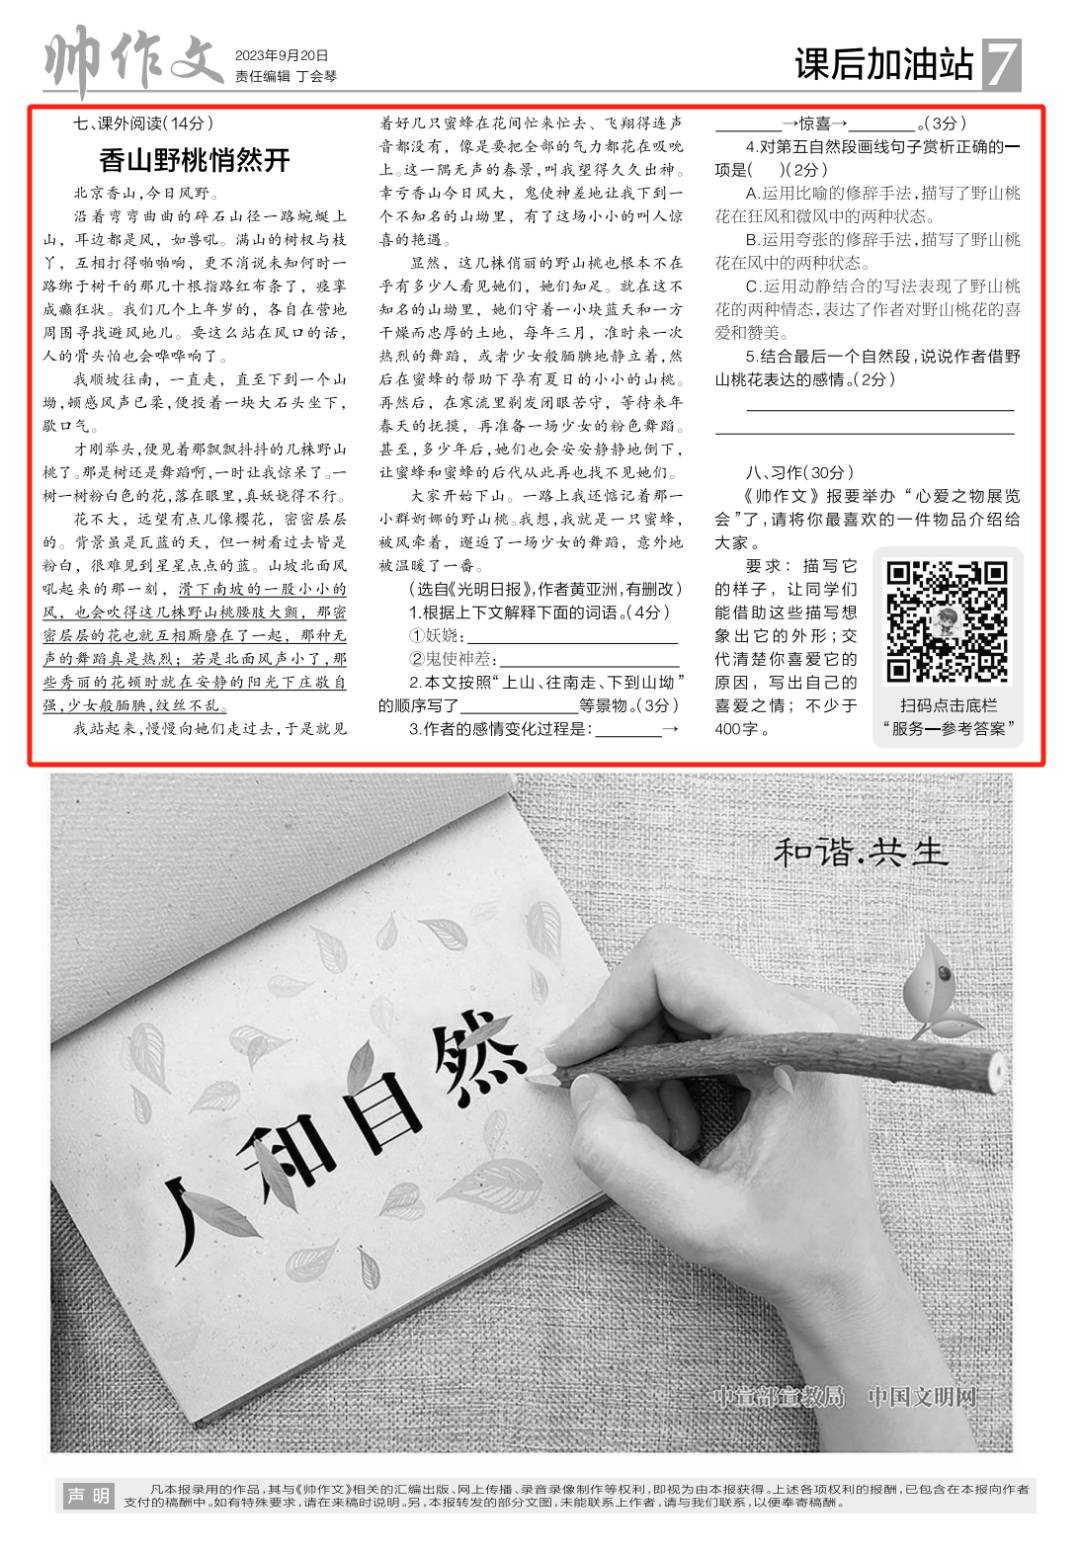 帅作文
2023年9月20日
责任编辑 丁会琴
课后加油站 7
七、课外阅读(14分)
香山野桃悄然开
北京香山,今日风野。
沿着弯弯曲曲的碎石山径一路蜿蜒上
山，耳边都是风，如兽吼。满山的树杈与枝
丫，互相打得啪啪响，更不消说未知何时一
路绑于树干的那几十根指路红布条了，痉挛
成癫狂状。我们几个上年岁的，各自在营地
周围寻找避风地儿。要这么站在风口的话，
人的骨头怕也会哗哗响了。
我顺坡往南，一直走，直至下到一个山
坳,顿感风声已柔,便投着一块大石头坐下，
歇口气。
才刚举头,便见着那飘飘抖抖的几株野山
桃了。那是树还是舞蹈啊,一时让我惊呆了。一
树一树粉白色的花,落在眼里,真妖娆得不行。
花不大，远望有点儿像樱花，密密层层
的。背景虽是瓦蓝的天，但一树看过去皆是
粉白，很难见到星星点点的蓝。山坡北面风
吼起来的那一刻，滑下南坡的一股小小的
风，也会吹得这几株野山桃腰肢大颤，那密
密层层的花也就互相厮磨在了一起，那种无
声的舞蹈真是热烈；若是北面风声小了,那
些秀丽的花顿时就在安静的阳光下庄敬自
强,少女般腼腆,纹丝不乱。
我站起来,慢慢向她们走过去,于是就见
着好几只蜜蜂在花间忙来忙去、飞翔得连声
音都没有，像是要把全部的气力都花在吸吮
上。这一隅无声的春景,叫我望得久久出神。
幸亏香山今日风大，鬼使神差地让我下到一
个不知名的山坳里，有了这场小小的叫人惊
喜的艳遇。
显然，这几株俏丽的野山桃也根本不在
乎有多少人看见她们，她们知足。就在这不
知名的山坳里，她们守着一小块蓝天和一方
干燥而忠厚的土地，每年三月，准时来一次
热烈的舞蹈，或者少女般腼腆地静立着,然
后在蜜蜂的帮助下孕有夏日的小小的山桃。
再然后，在寒流里剃发闭眼苦守，等待来年
春天的抚摸，再准备一场少女的粉色舞蹈。
甚至,多少年后,她们也会安安静静地倒下，
让蜜蜂和蜜蜂的后代从此再也找不见她们。
大家开始下山。一路上我还惦记着那一
小群婀娜的野山桃。我想,我就是一只蜜蜂，
被风牵着，邂逅了一场少女的舞蹈，意外地
被温暖了一番。
(选自《光明日报》,作者黄亚洲,有删改)
1.根据上下文解释下面的词语。(4分)
①妖娆:
②鬼使神差:
2.本文按照“上山、往南走、下到山坳”
的顺序写了____________等景物。(3分)
3.作者的感情变化过程是:________→
________→惊喜→________。(3分)
4.对第五自然段画线句子赏析正确的一
项是(　　)(2分)
A.运用比喻的修辞手法,描写了野山桃
花在狂风和微风中的两种状态。
B.运用夸张的修辞手法,描写了野山桃
花在风中的两种状态。
C.运用动静结合的写法表现了野山桃
花的两种情态,表达了作者对野山桃花的喜
爱和赞美。
5.结合最后一个自然段,说说作者借野
山桃花表达的感情。(2分)
八、习作(30分)
《帅作文》报要举办“心爱之物展览
会”了,请将你最喜欢的一件物品介绍给
大家。
要求：描写它
的样子，让同学们
能借助这些描写想
象出它的外形；交
代清楚你喜爱它的
原因，写出自己的
喜爱之情；不少于
400字。
扫码点击底栏
“服务—参考答案”
和谐.共生
人和自然
中宣部宣教局 中国文明网
声明
凡本报录用的作品,其与《帅作文》相关的汇编出版、网上传播、录音录像制作等权利,即视为由本报获得。上述各项权利的报酬,已包含在本报向作者
支付的稿酬中。如有特殊要求,请在来稿时说明。另,本报转发的部分文图,未能联系上作者,请与我们联系,以便奉寄稿酬。